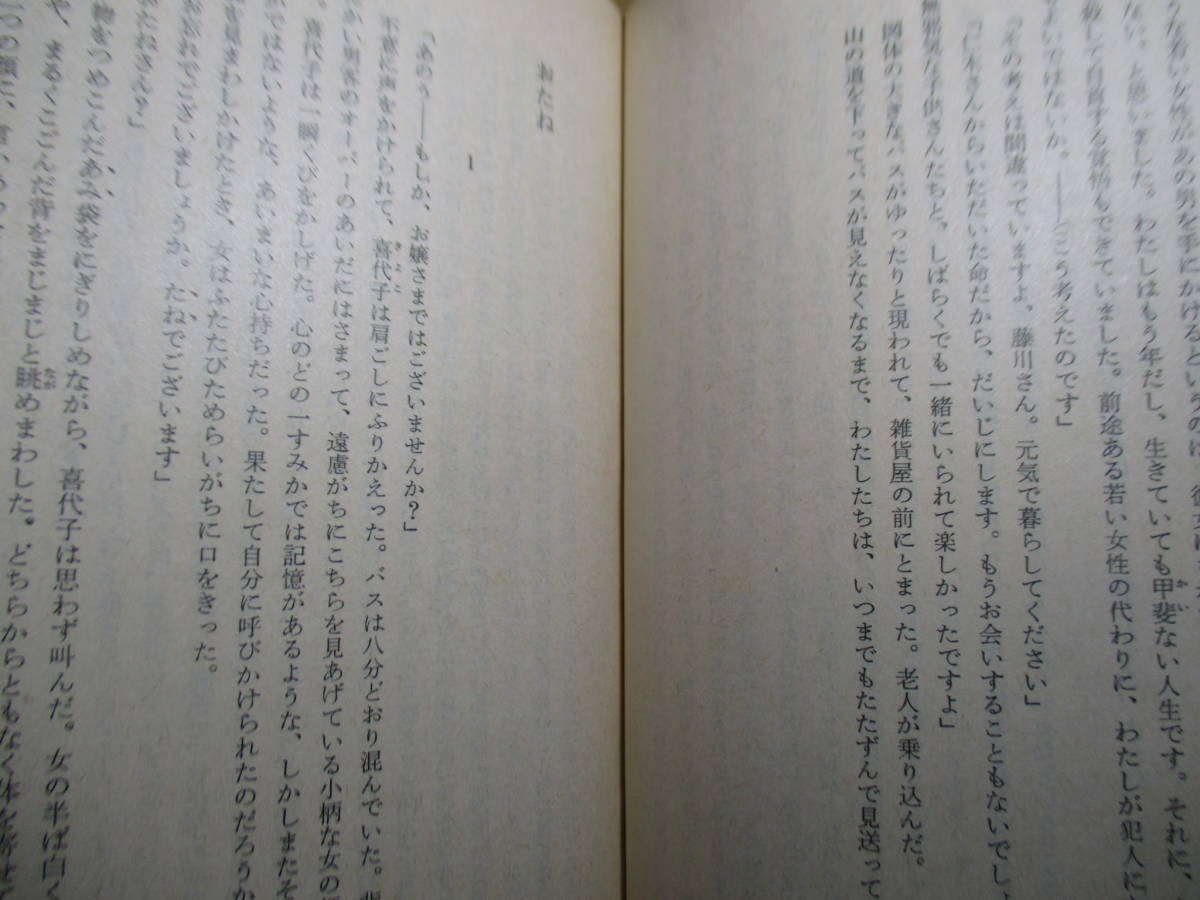 うな若い女性があの男を手にかけるというのは
ない、と思いました。わたしはもう年だし、生きていても甲斐ない人生です。それに、
殺して自首する覚悟もできていました。前途ある若い女性の代わりに、わたしが犯人に
よいではないか。――こう考えたのです」
の考えは間違っていますよ、藤川さん。元気で暮らしてください」
「仁木さんからいただいた命だから、だいじにします。もうお会いすることもないでしょ
無邪気な子供さんたちと、しばらくでも一緒にいられて楽しかったですよ」
図体の大きなバスがゆったりと現われて、雑貨屋の前にとまった。老人が乗り込んだ。
山の道を下ってバスが見えなくなるまで、わたしたちは、いつまでもたたずんで見送って
おたね
1
「あのう――もしか、お嬢さまではございませんか?」
不意に声をかけられて、喜代子は肩ごしにふりかえった。バスは八分どおり混んでいた。
でかい男客のオーバーのあいだにはさまって、遠慮がちにこちらを見あげている小柄な女の
喜代子は一瞬くびをかしげた。心のどの一すみかでは記憶があるような、しかしまたそ
かではないような、あいまいな心持ちだった。果たして自分に呼びかけられたのだろうか
を見まわしかけたとき、女はふたたびためらいがちに口をきった。
がれでございましょうか。たねでございます」
たねさん?」
物をつめこんだあみ袋をにぎりしめながら、喜代子は思わず叫んだ。女の半ば白く
や、まるくこごんだ背をまじまじと眺めまわした。どちらからともなく体を寄せて
つの顔に、